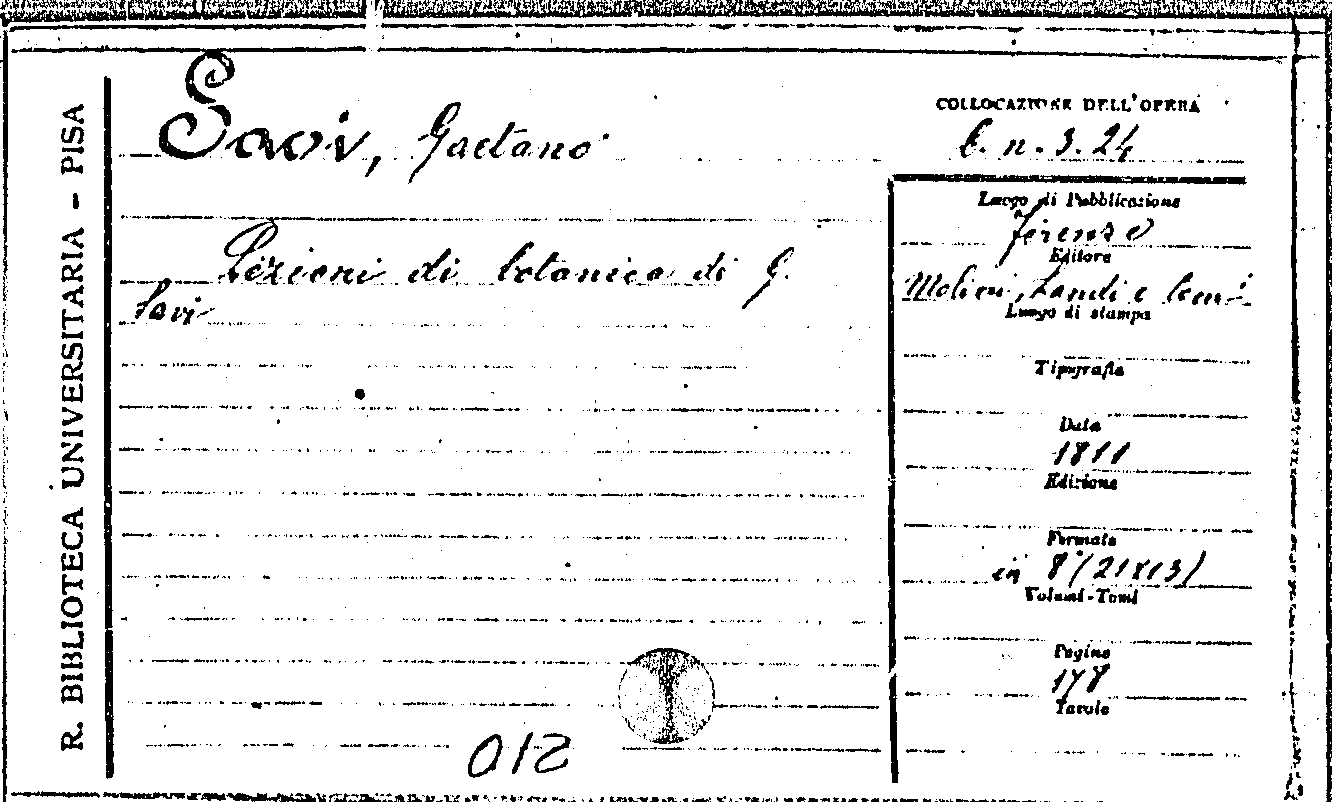 R. BIBLIOTECA UNIVERSITARIA - PISA
Savi, Gaetano
Lezioni di botanica di G.
Savi
COLLOCAZIONE DELL'OPERA
B. n. 3. 24
Luogo di Pubblicazione
Firenze
Editore
Molini, Landi e Com.
Luogo di stampa
Tipografia
Data
1811
Edizione
Formato
in 8° (21x13)
Volumi-Tomi
Pagine
178
Tavole
012